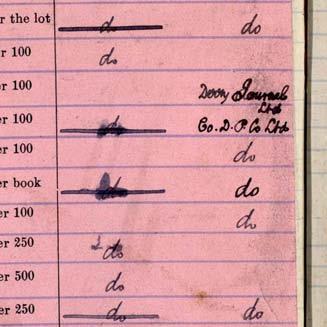 r the lot do do
er 100 do
er 100 Derry Journal Ltd
er 100 do Co. D. P. Co Ltd
er 100 do
er book do do
er 100 do
er 250 do
er 500 do
er 250 do do